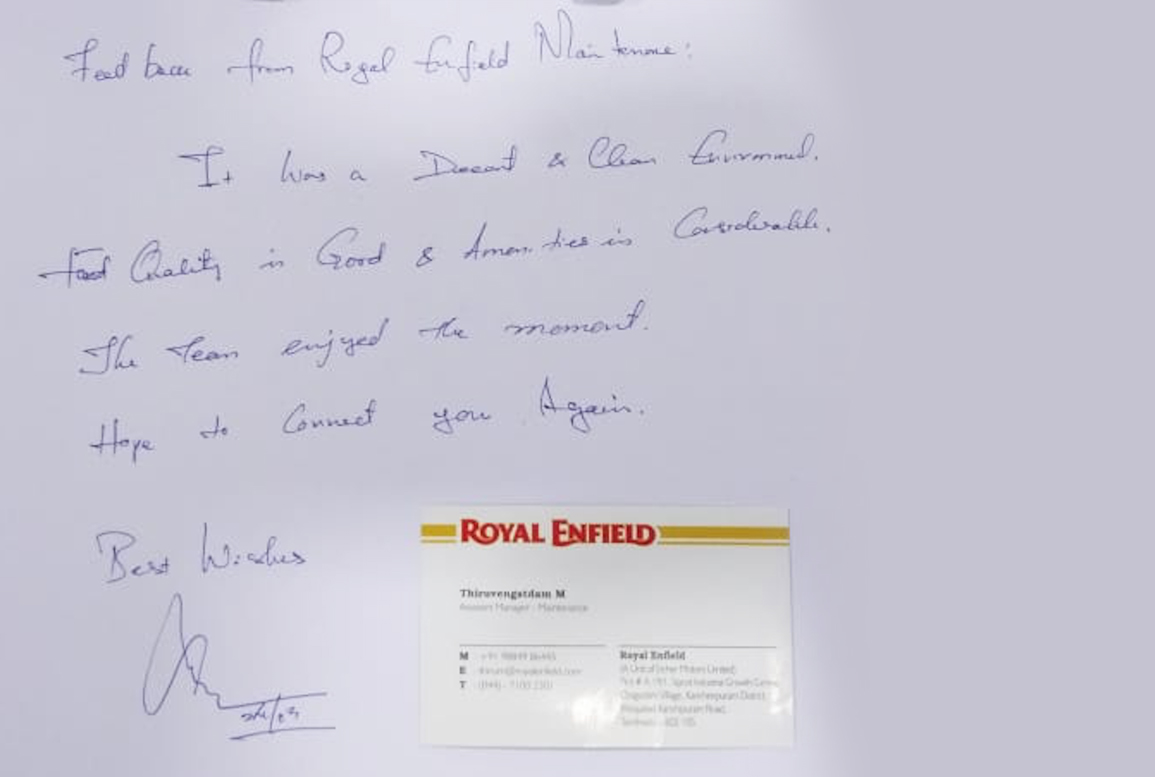 Feed back from Royal Enfield Maintenance:
It was a Decent & Clean Environment.
Food Quality is Good & Amenities is Considerable.
The Team enjyed the moment.
Hope to Connect you Again.
Best Wishes
ROYAL ENFIELD
Thiruvengatdam M
Assistant Manager - Maintenance
M
E
T
Royal Enfield
(A Unit of Eicher Motors Limited)
Industrial Growth Centre
Village, Kancheepuram District